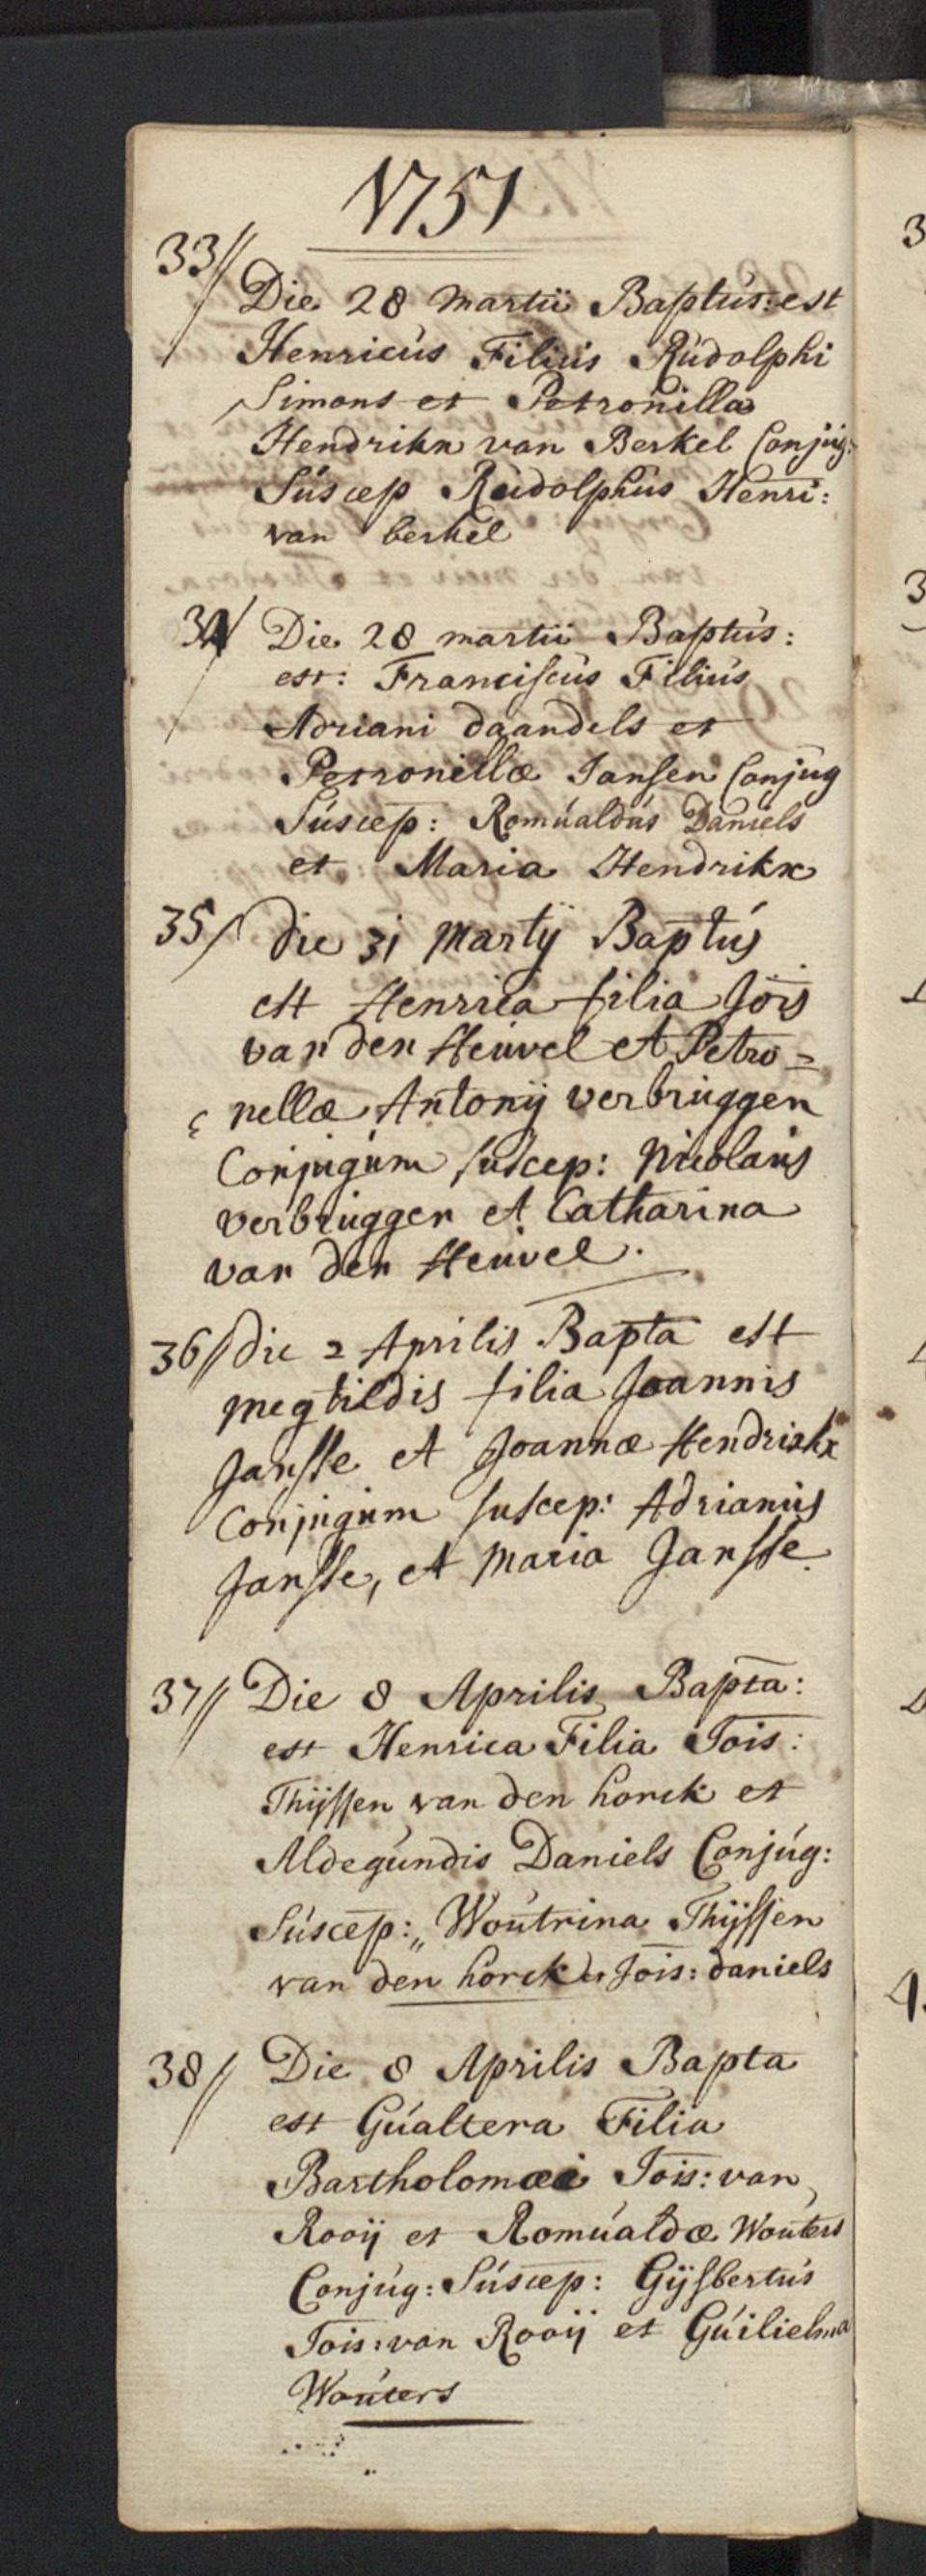 1751
33// Die 28 martii Baptus: est
Henricus Filius Rudolphi
Simons et Petronilla
Hendrikx van Berkel Conjug:
Suscep Rudolphus Henri:
van berkel
34/ Die 28 martii Baptus:
est: Franciscus Filius
Adriani daandels et
Petronillæ Jansen Conjug
Suscep: Romualdus Daniels
et Maria Hendrikx
35/ die 31 Martij Baptus
est Henrica filia Jois
van den Heuvel et Petro=
nellæ Antonij verbruggen
Conjugum suscep: Nicolaus
verbruggen et Catharina
van den Heuvel.
36// die 2 Aprilis Bapta est
megtildis filia Joannis
Jansse et Joannæ Hendrickx
Conjugum suscep: Adrianus
Jansse, et Maria Jansse.
37// Die 8 Aprilis Bapta:
est Henrica Filia Jois:
Thijssen van den horck et
Aldegundis Daniels Conjug:
Suscep:,, Woutrina Thijssen
van den horck et Jois: daniels
38// Die 8 Aprilis Bapta
est Gualtera Filia
Bartholomæi Jois: van
Rooij et Romualdæ Wouters
Conjug: Suscep: Gijsbertus
Jois: van Rooij et Guilielma
Wouters